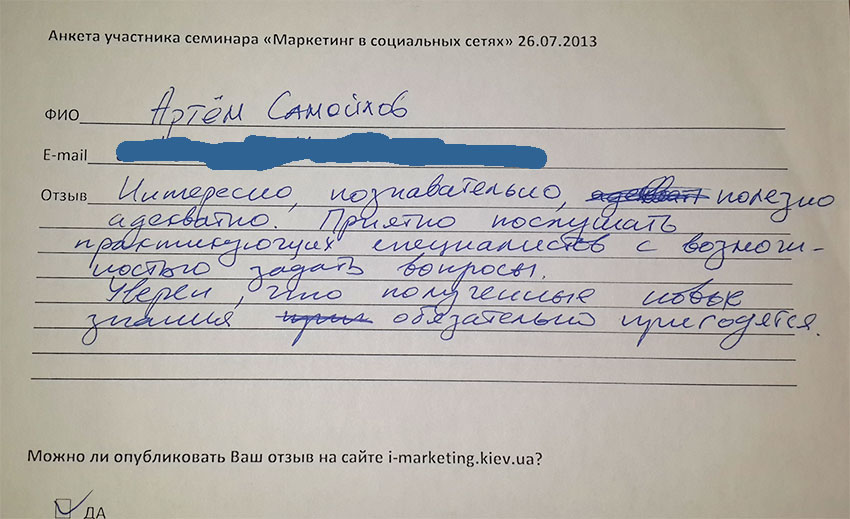 Анкета участника семинара «Маркетинг в социальных сетях» 26.07.2013
ФИО Артём Самойлов
E-mail
Отзыв Интересно, познавательно, полезно
адекватно. Приятно послушать
практикующих специалистов с возмож-
ностью задать вопросы.
Уверен, что полученные новые
знания обязательно пригодятся.
Можно ли опубликовать Ваш отзыв на сайте i-marketing.kiev.ua?
ДА